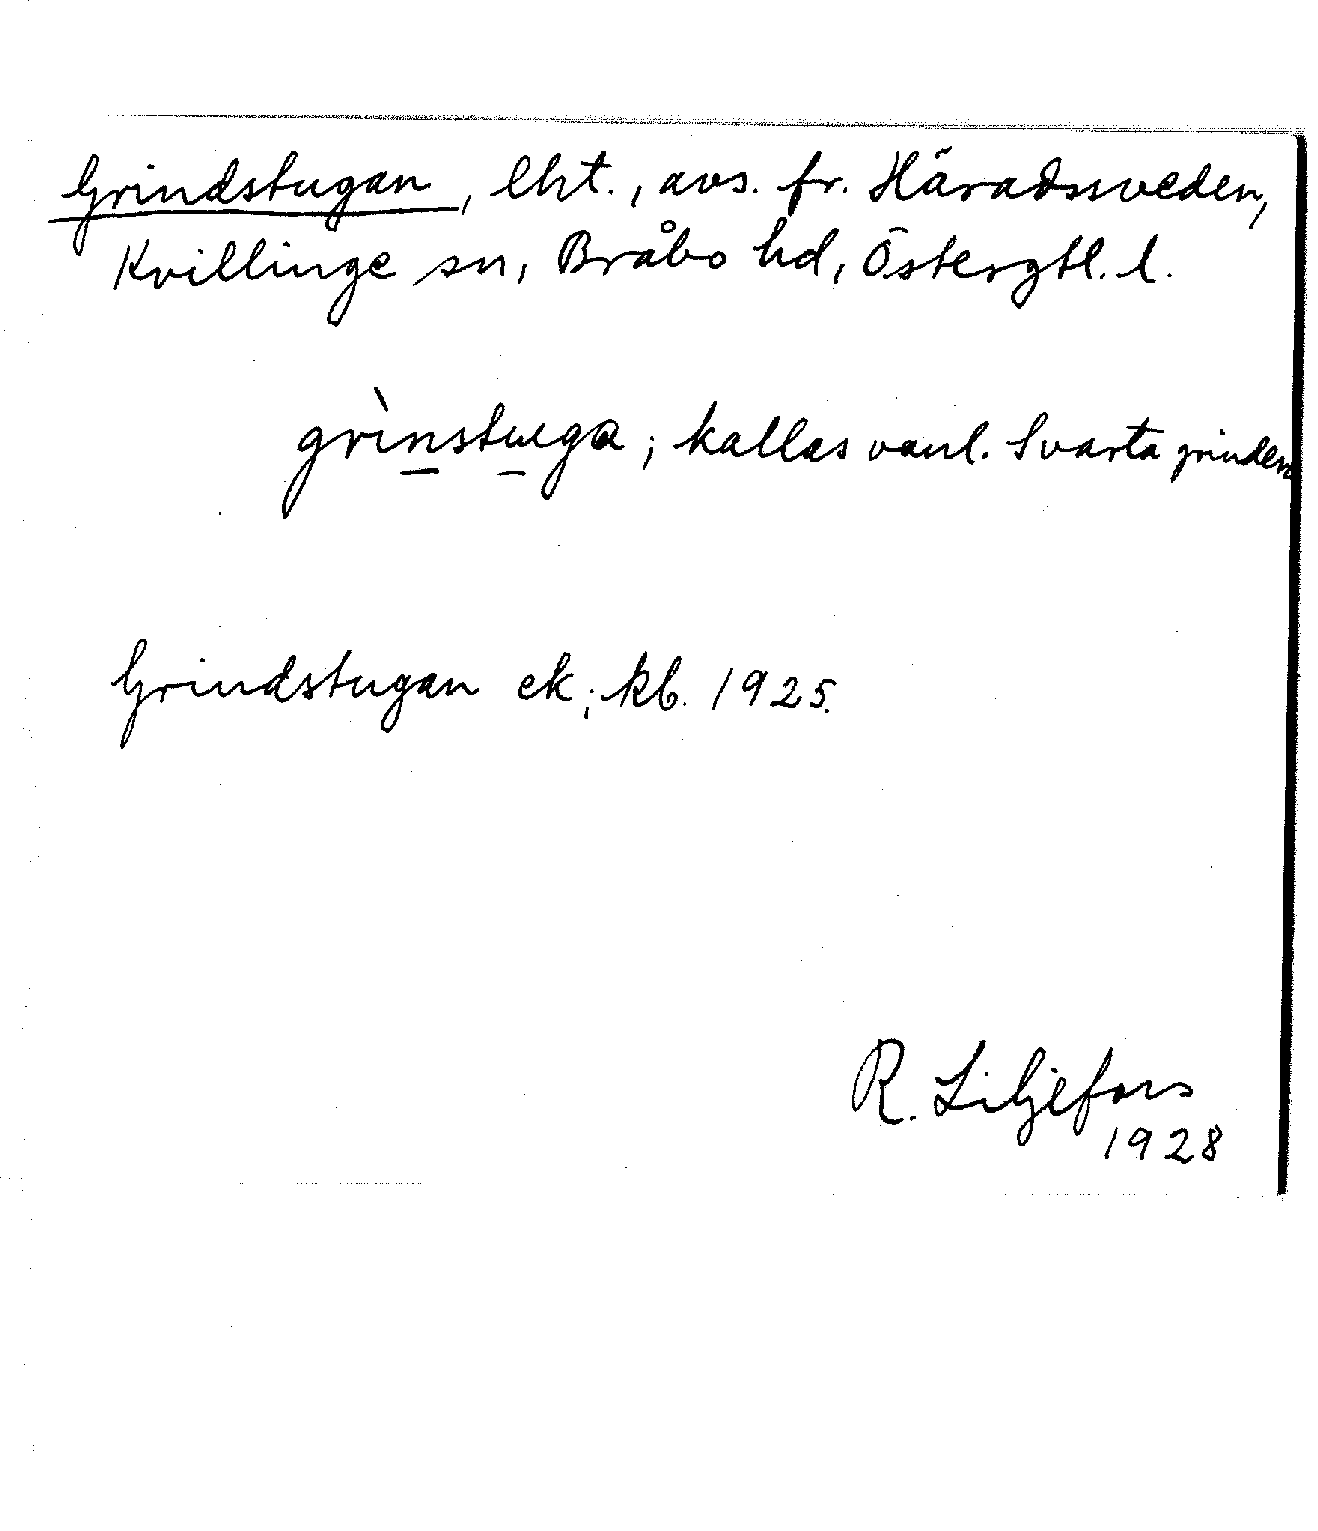 Grindstugan, lht., avs. fr. Häradssveden,
Kvillinge sn, Bråbo hd, Östergtl. l.
grìnstuga; kallas vanl. Svarta grinden
Grindstugan ek; kb. 1925.
R. Liljefors
1928